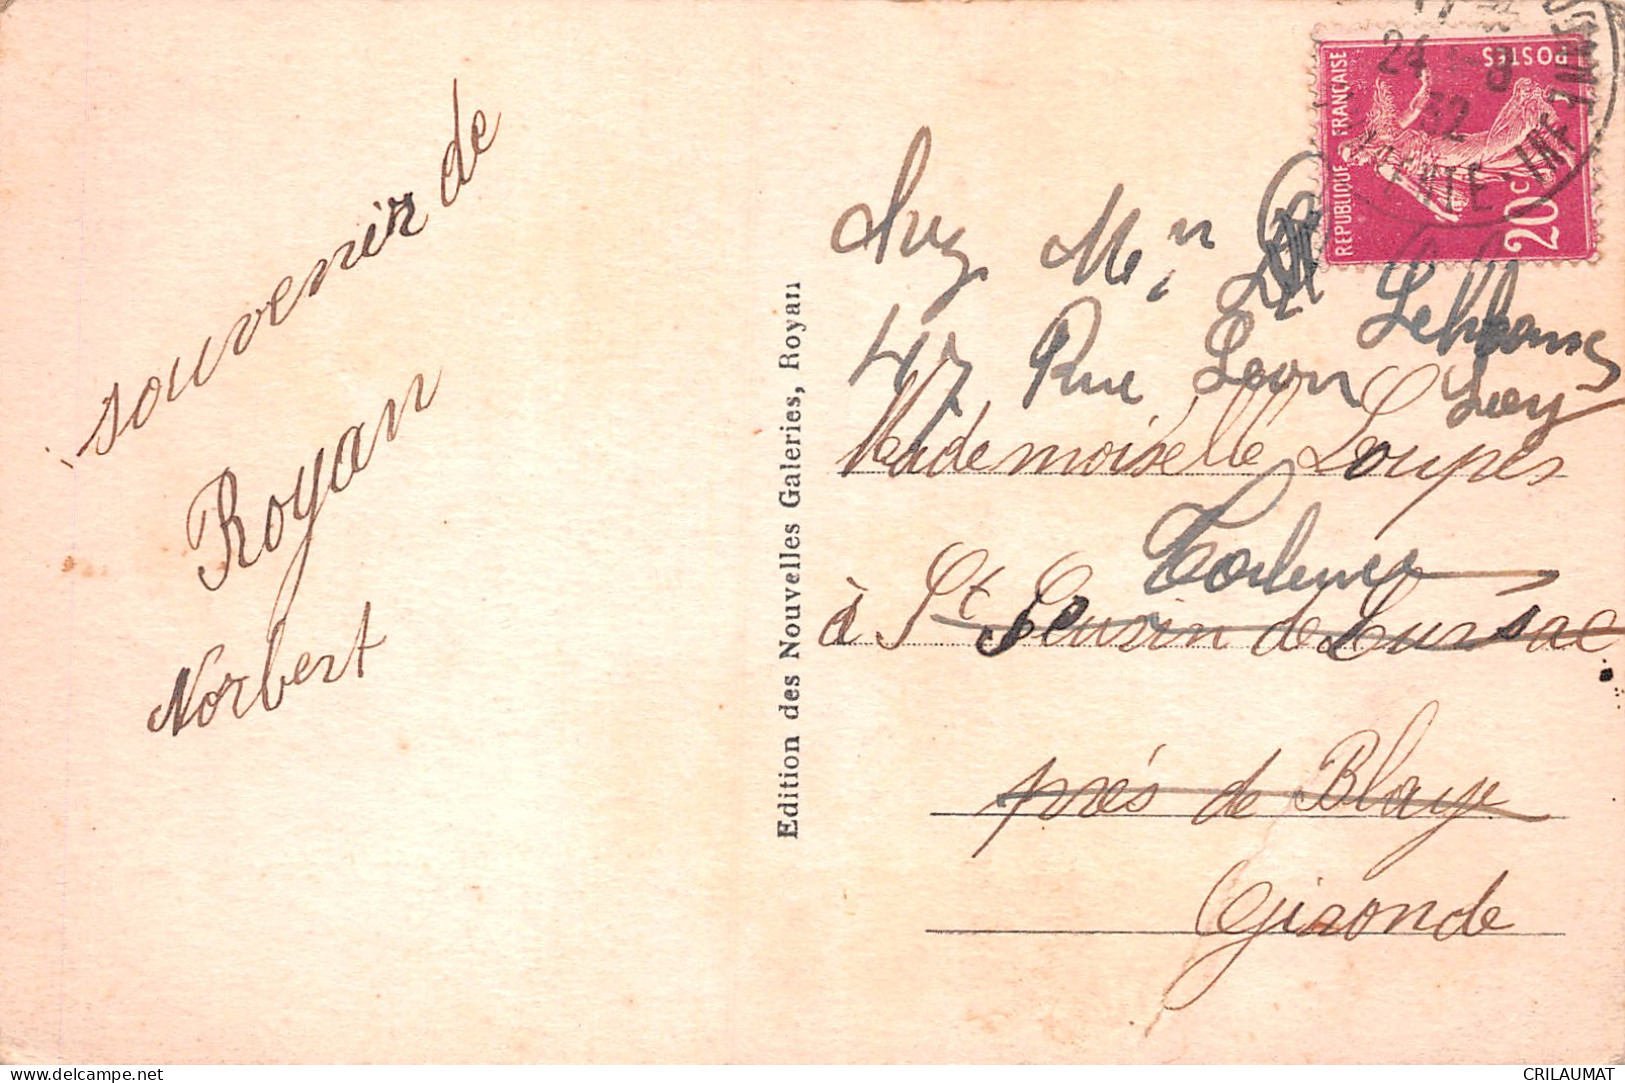 souvenir de
Royan
Norbert
Edition des Nouvelles Galeries, Royan
REPUBLIQUE FRANÇAISE
POSTES
20c
24 - 8
32
INFRE
Chez Me
47 Rue Leon
Mademoiselle Loupès
à St Seurin de Cursac
près de Blaye
Gironde
delcampe.net
CRILAUMAT